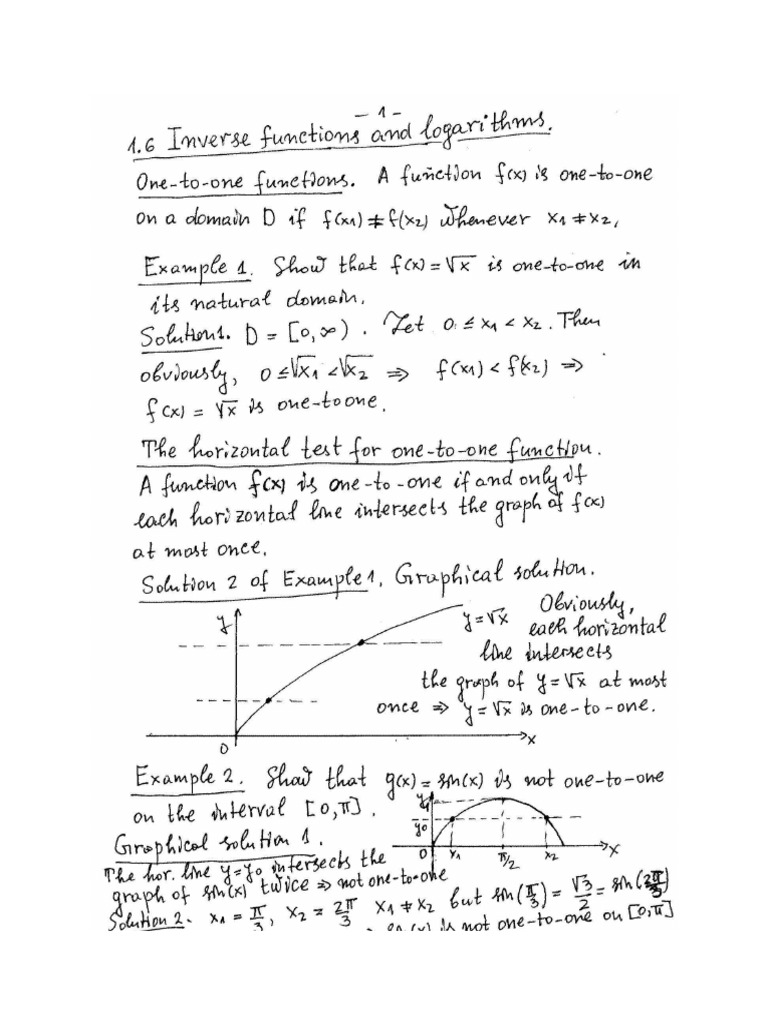 - 1 -
1.6 Inverse functions and logarithms.
One-to-one functions. A function f(x) is one-to-one
on a domain D if f(x1) ≠ f(x2) whenever x1 ≠ x2,
Example 1. Show that f(x) = √x is one-to-one in
its natural domain.
Solution1. D = [0,∞). Let 0 ≤ x1 < x2. Then
obviously, 0 ≤ √x1 < √x2 ⇒ f(x1) < f(x2) ⇒
f(x) = √x is one-to one.
The horizontal test for one-to-one function.
A function f(x) is one-to-one if and only if
each horizontal line intersects the graph of f(x)
at most once.
Solution 2 of Example 1. Graphical solution.
y
y = √x Obviously,
each horizontal
line intersects
the graph of y = √x at most
once ⇒ y = √x is one-to-one.
0 x
Example 2. Show that g(x) = sin(x) is not one-to-one
on the interval [0,π].
y
1
y0
Graphical solution 1.
0 x1 π/2 x2 x
The hor. line y = y0 intersects the
graph of sin(x) twice ⇒ not one-to-one
Solution 2. x1 = π/3, x2 = 2π/3 x1 ≠ x2 but sin(π/3) = √3/2 = sin(2π/3)
is not one-to-one on [0,π]